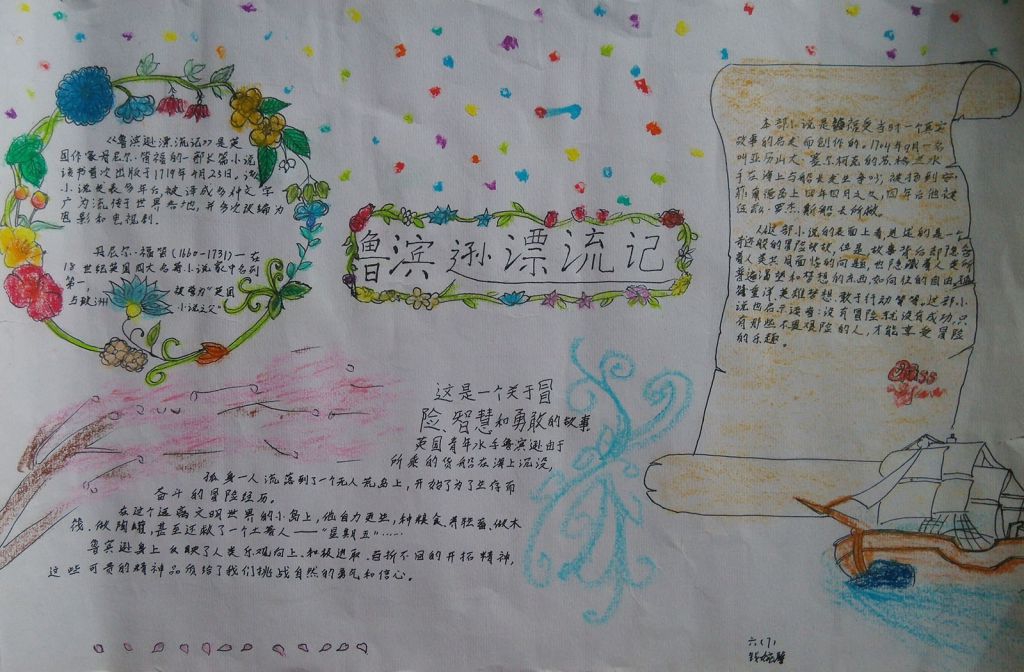 《鲁滨逊漂流记》是英
国作家丹尼尔·笛福的一部长篇小说
该书首次出版于1719年4月25日。该
小说发表多年后,被译成多种文字
广为流传于世界各地,并多次被改编为
电影和电视剧。
丹尼尔·福笛(1660-1731)一在
18世纪英国四大名著小说家中名列
第一,
与欧洲
被誉为“英国
小说之父”
鲁滨逊漂流记
这是一个关于冒
险、智慧和勇敢的故事
英国青年水手鲁滨逊由于
所乘的货船在海上沉没,
孤身一人流落到了一个无人荒岛上,开始了为了生存而
奋斗的冒险经历。
在这个远离文明世界的小岛上,他自力更生,种粮食、养牲畜、做木
筏、做陶罐,甚至还救了一个土著人——“星期五”……
鲁宾逊身上反映了人类乐观向上、积极进取、百折不回的开拓精神,
这些可贵的精神品质给了我们挑战自然的勇气和信心。
本部小说是受当时一个真实
故事的启发而创作的。1704年9月一名
叫亚历山大·塞尔柯克的苏格兰水
手在海上与船长发生争吵,被抛到安
菲南德岛上四年四月之久,四年后他被
伍兹·罗杰斯船长所救。
从这部小说的表面上看,讲述的是一个
冒险故事,但是故事背后却隐含
着人类共同面临的问题,也隐藏着人类所
渴望和梦想的东西,如向往的自由、
英雄梦想、敢于行动等等。这部小
说也启示读者:没有冒险就没有成功,只
有那些不畏艰险的人,才能享受冒险
的乐趣。
六(7)